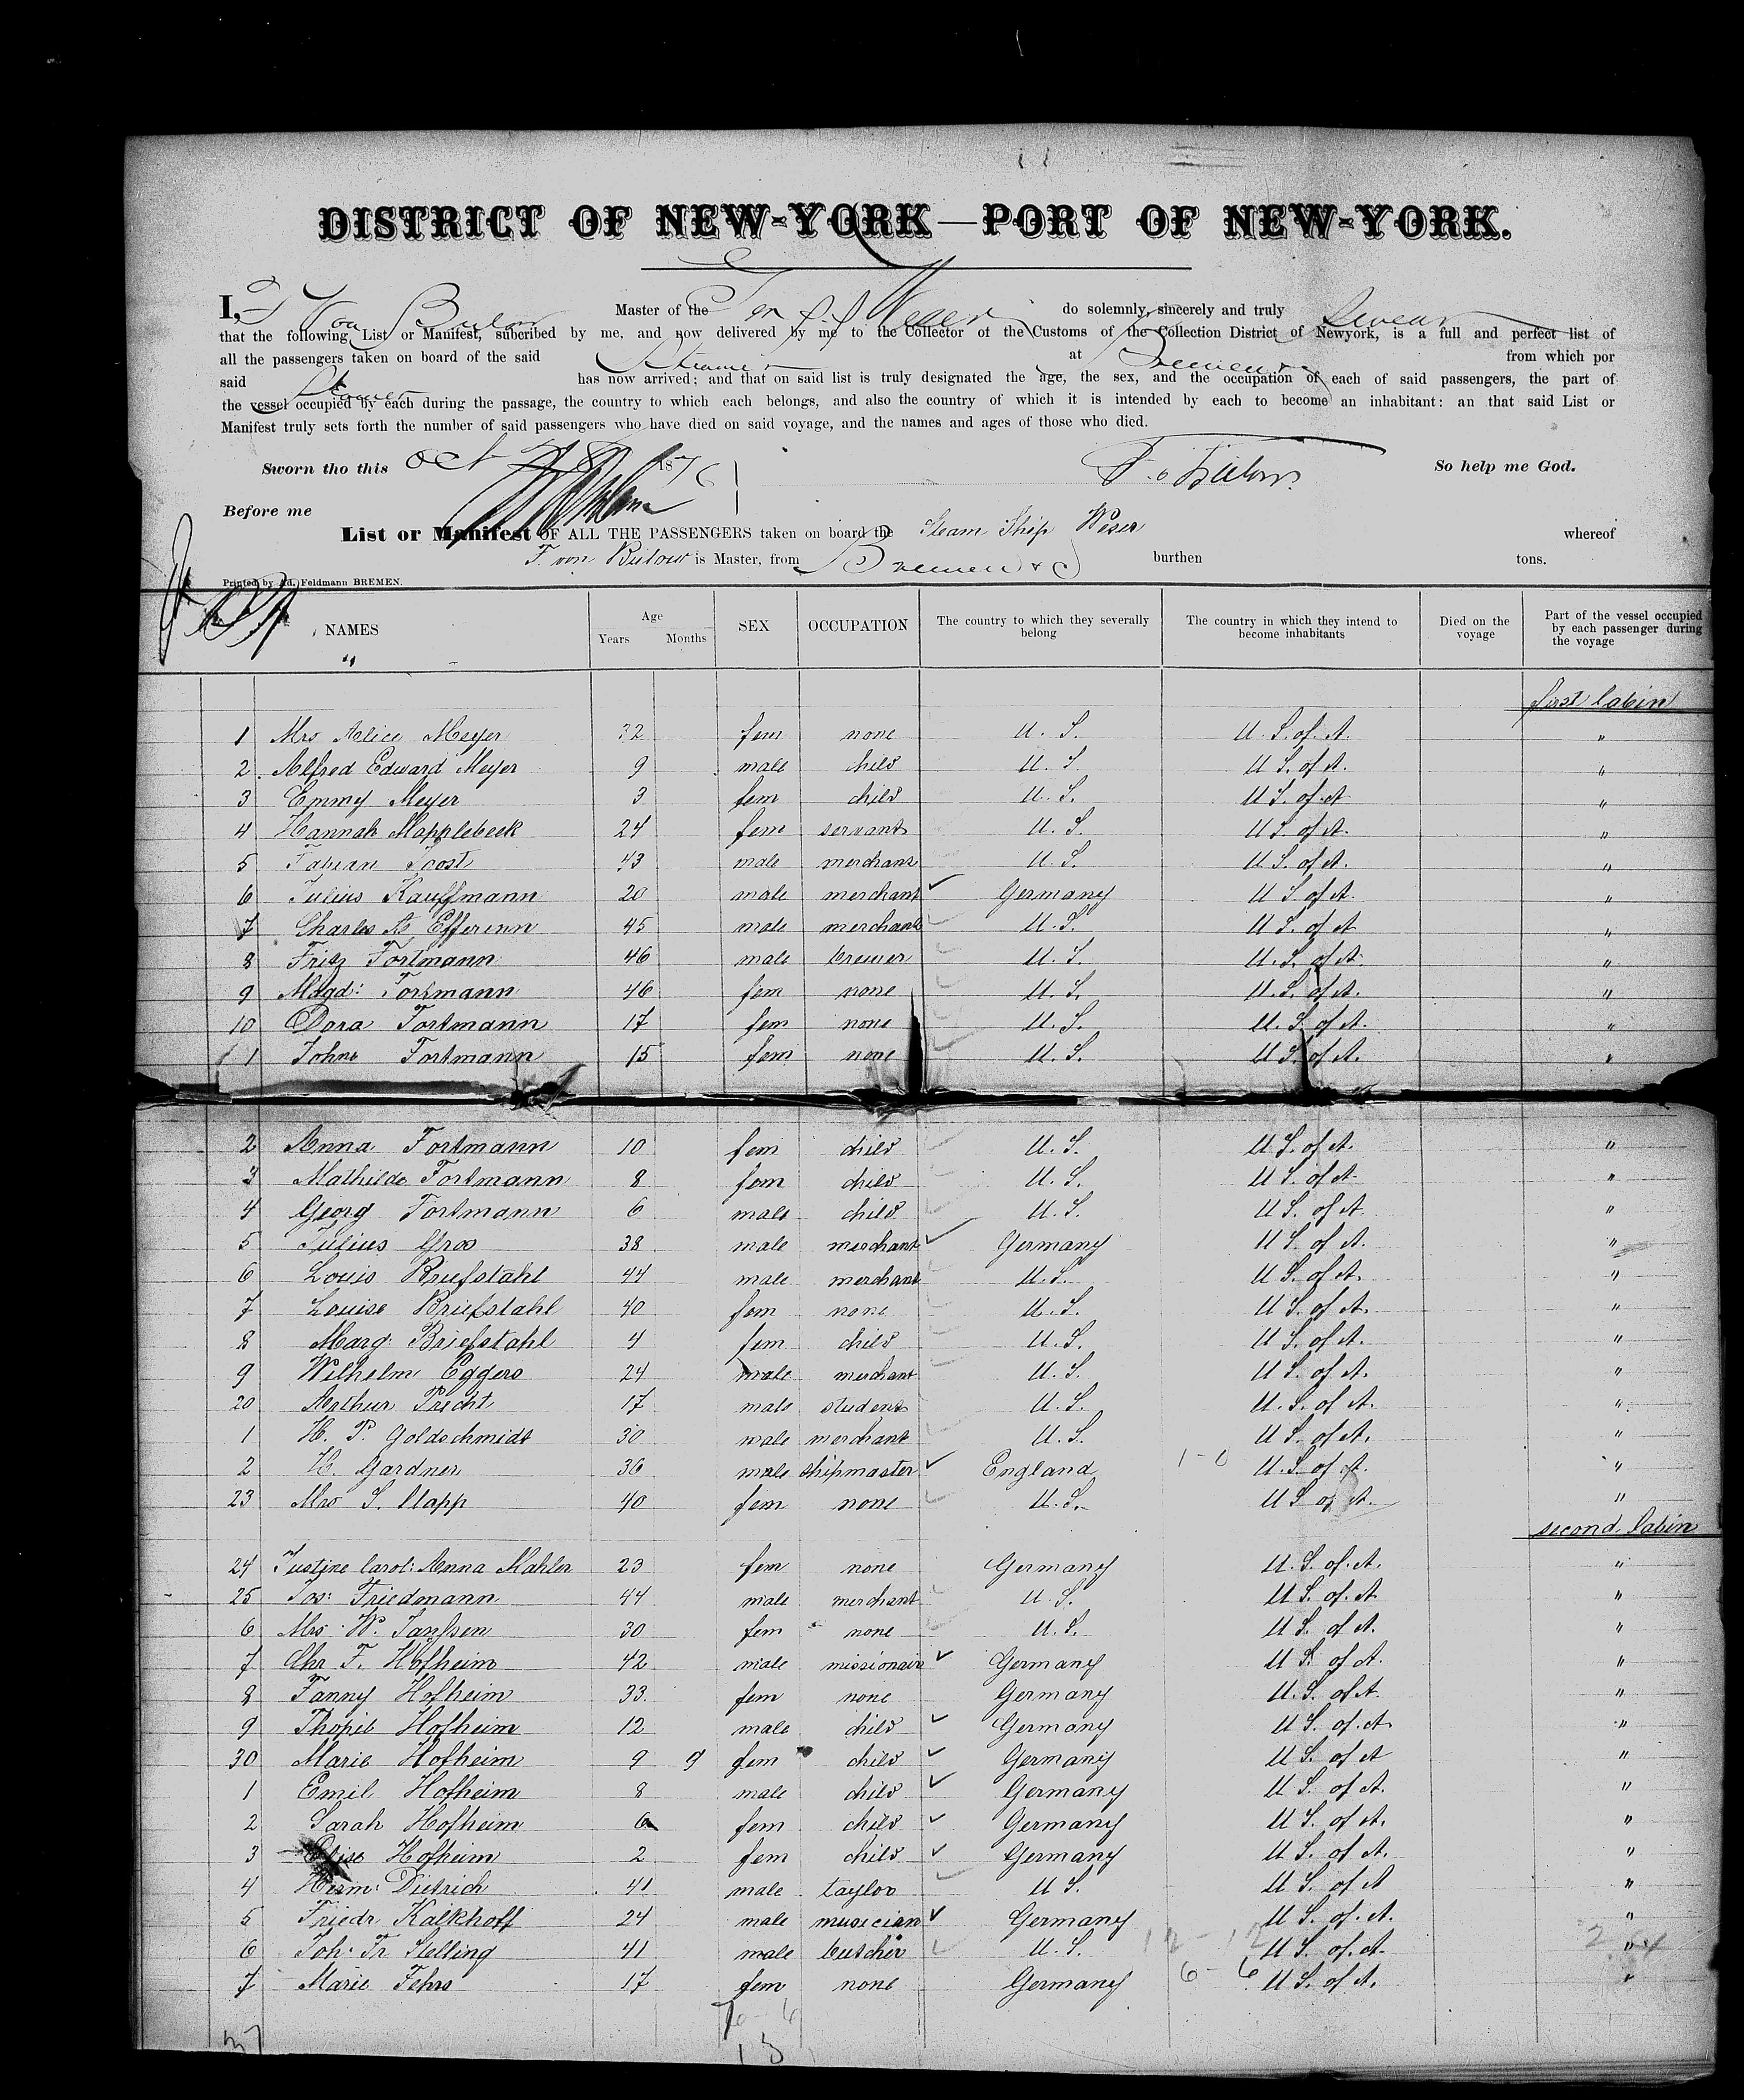 DISTRICT OF NEW-YORK—PORT OF NEW-YORK.
I, F Von Bulow Master of the Ger S. S. Weser do solemnly, sincerely and truly Swear
that the following List or Manifest, subcribed by me, and now delivered by me to the Collector of the Customs of the Collection District of Newyork, is a full and perfect list of
all the passengers taken on board of the said Steamer at Bremen from which por
said Steamer has now arrived; and that on said list is truly designated the age, the sex, and the occupation of each of said passengers, the part of
the vessel occupied by each during the passage, the country to which each belongs, and also the country of which it is intended by each to become an inhabitant: an that said List or
Manifest truly sets forth the number of said passengers who have died on said voyage, and the names and ages of those who died.
Sworn tho this Oct 1876 F. v Bülow. So help me God.
Before me
List or Manifest OF ALL THE PASSENGERS taken on board the Steam Ship Weser whereof
F. von Bülow is Master, from Bremen & burthen tons.
Printed by Ed. Feldmann BREMEN.
NAMES Age Years Months SEX OCCUPATION The country to which they severally belong The country in which they intend to become inhabitants Died on the voyage Part of the vessel occupied by each passenger during the voyage
first Cabin
1 Mrs Alice Meyer 32 fem none U. S. U. S. of A. "
2 Alfred Edward Meyer 9 male child U. S U S. of A. "
3 Emmy Meyer 3 fem child U. S. U S. of A "
4 Hannah Mapplebeck 24 fem servant U. S. U S of A. "
5 Fabian Joost 43 male merchant U. S. U S. of A. "
6 Julius Kauffmann 20 male merchant Germany U S of A. "
7 Charles A. Efferenn 45 male merchant U. S. U S. of A "
8 Fritz Fortmann 46 male brewer U. S. U. S. of A. "
9 Magd: Fortmann 46 fem none U. S. U. S. of A. "
10 Dora Fortmann 17 fem none U. S. U. S of A. "
1 Johne Fortmann 15 fem none U. S. U S. of A. "
2 Anna Fortmann 10 fem child U. S. U S. of A. "
3 Mathilde Fortmann 8 fem child U. S. U S. of A. "
4 Georg Fortmann 6 male child U. S. U S. of A. "
5 Julius Gros 38 male merchant Germany U S. of A. "
6 Louis Briefstahl 44 male merchant U. S. U S. of A. "
7 Louise Briefstahl 40 fem none U. S. U S. of A. "
8 Marg: Briefstahl 4 fem child U. S. U S. of A. "
9 Wilhelm Eggers 24 male merchant U. S. U S. of A. "
20 Arthur Precht 17 male student U. S. U. S. of A. "
1 H. P. Goldschmidt 30 male merchant U. S. U S. of A. "
2 H. Gardner 36 male shipmaster England 1-0 U. S. of A. "
23 Mrs S. Clapp 40 fem none U. S. U S of A. "
second Cabin
24 Justine Carol: Anna Mahler 23 fem none Germany U. S. of. A. "
25 Jos: Friedmann 44 male merchant U. S. U S. of A "
6 Mrs W. Janssen 30 fem none U. S. U S. of A. "
7 Chr. F. Hofheim 42 male missionair Germany U S. of A. "
8 Fanny Hofheim 33. fem none Germany U. S. of A. "
9 Thopil Hofheim 12 male child Germany U S. of. A. "
30 Marie Hofheim 9 9 fem child Germany U S. of A "
1 Emil Hofheim 8 male child Germany U S. of A. "
2 Sarah Hofheim 6 fem child Germany U S. of A. "
3 Elise Hofheim 2 fem child Germany U S. of A. "
4 Herm: Dietrich 41 male taylor U S. U S. of A "
5 Friedr Kalkhoff 24 male musician Germany U S. of. A. "
6 Joh: Fr Stelling 41 male butcher U. S. 12-12 U S. of. A. "
7 Marie Fehrs 17 fem none Germany 6-6 U S. of A. "
37
13